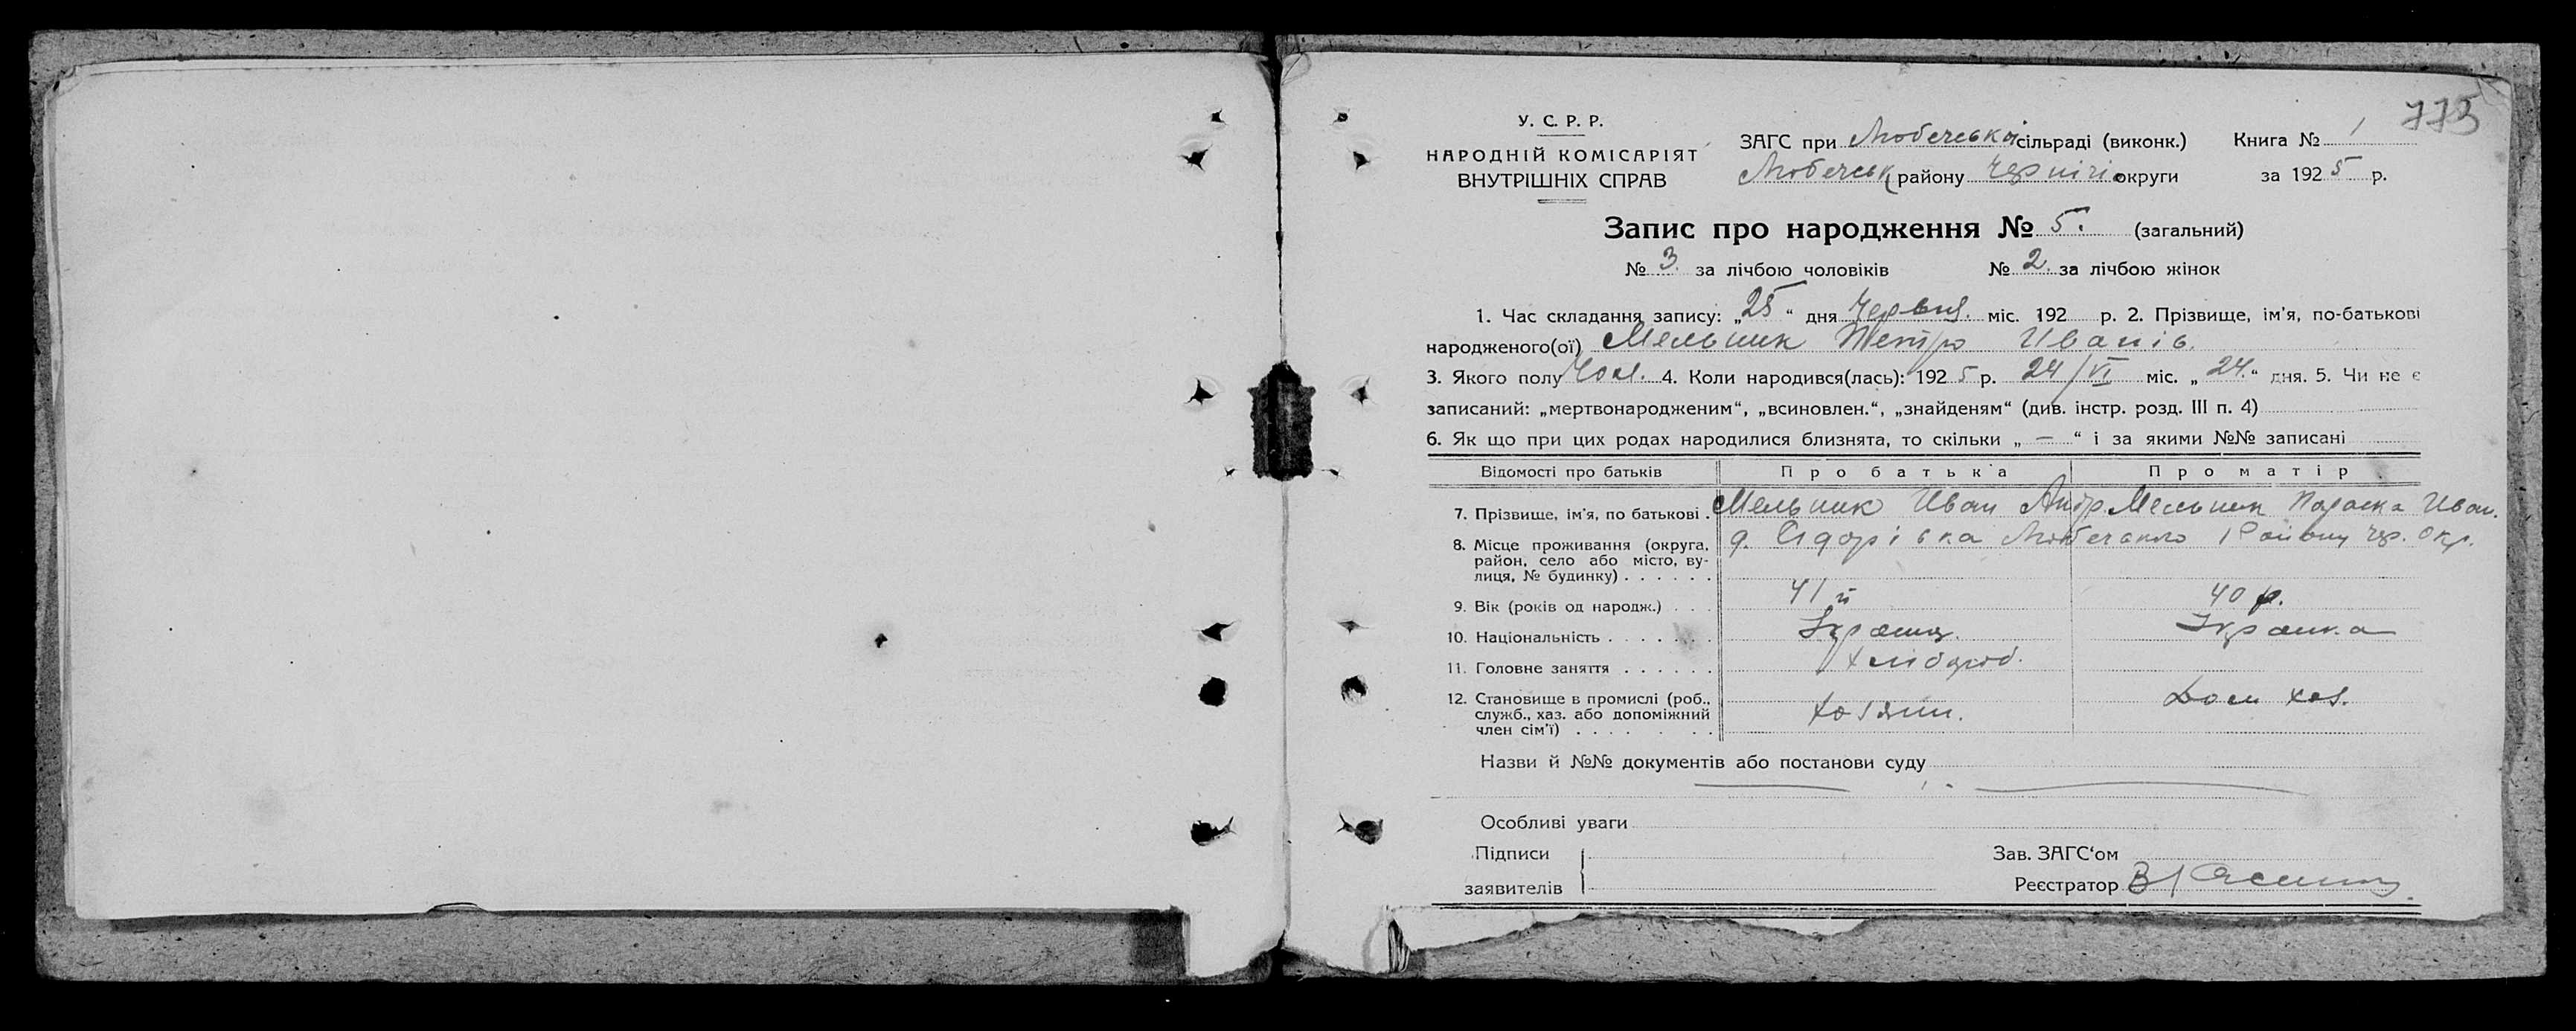 775
У. С. Р. Р.
НАРОДНІЙ КОМІСАРІЯТ
ВНУТРІШНІХ СПРАВ
ЗАГС при Любечській сільраді (виконк.) Книга № 1
Любечськ району Чернігів округи за 1925 р.
Запис про народження № 5. (загальний)
№ 3. за лічбою чоловіків № 2. за лічбою жінок
1. Час складання запису: „25“ дня Червня. міс. 192 р. 2. Прізвище, ім'я, по-батькові
народженого(ої) Мельник Петро Иванів.
3. Якого полу Чол. 4. Коли народився(лась): 1925 р. 24/VI міс. „24.“ дня. 5. Чи не є
записаний: „мертвонародженим“, „всиновлен.“, „знайденям“ (див. інстр. розд. III п. 4)
6. Як що при цих родах народилися близнята, то скільки „ — “ і за якими №№ записані
Відомості про батьків Про батька Про матір
7. Прізвище, ім'я, по батькові . Мельник Иван Андр. Мельник Параска Иван.
8. Місце проживання (округа, район, село або місто, вулиця, № будинку) . . . . . . д. Сидорівка Любечського Району Чер. Окр.
9. Вік (років од народж.) . . . 41 й 40 р.
10. Національність . . . . . . .
11. Головне заняття . . . . . . Хлібороб.
12. Становище в промислі (роб., служб., хаз. або допоміжний член сім'ї) . . . . . . . Хозяин. Дом хоз.
Назви й №№ документів або постанови суду
Особливі уваги
Підписи
заявителів
Зав. ЗАГС‘ом
Реєстратор